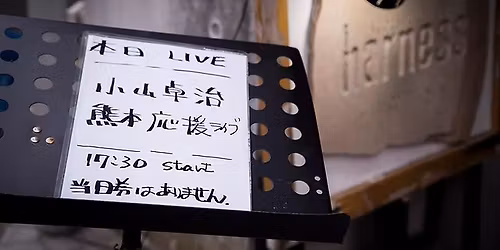 本日 LIVE
小山卓治
熊本応援ライブ
17:30 start
当日券はありません.
harness